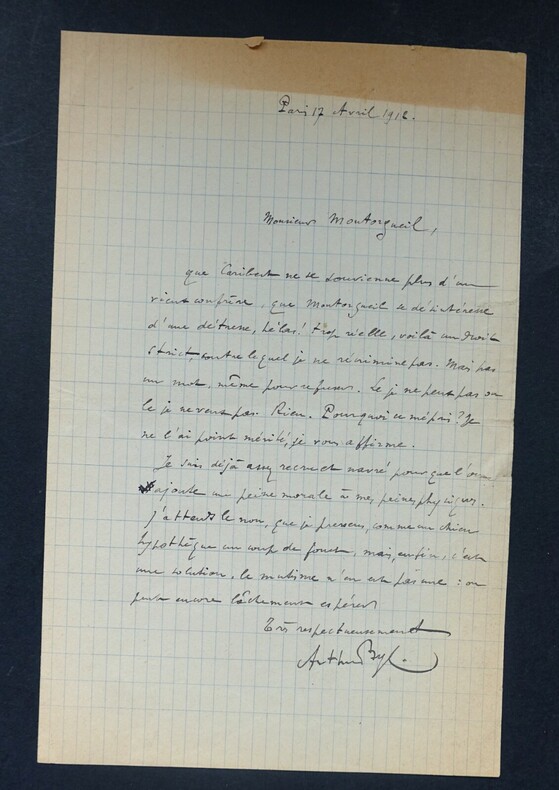 Paris 17 Avril 1912.
Monsieur Montorgueil,
que Caribert ne se souvienne plus d'un
vieux confrère, que Montorgueil se désintéresse
d'une détresse, hélas! trop réelle, voilà un droit
strict, contre lequel je ne récrimine pas. Mais pas
un mot, même pour refuser. Le je ne peux pas ou
le je ne veux pas. Rien. Pourquoi ce mépris? Je
ne l'ai point mérité, je vous affirme.
Je suis déjà assez recru et navré pour que l'on
ajoute un peine morale à mes peines physiques.
J'attends le non, que je pressens, comme un chien
hypothèque un coup de fouet, mais, enfin, c'est
une solution, le mutisme n'en est pas une : on
peut encore lâchement espérer
Très respectueusement
Arthur Byl.